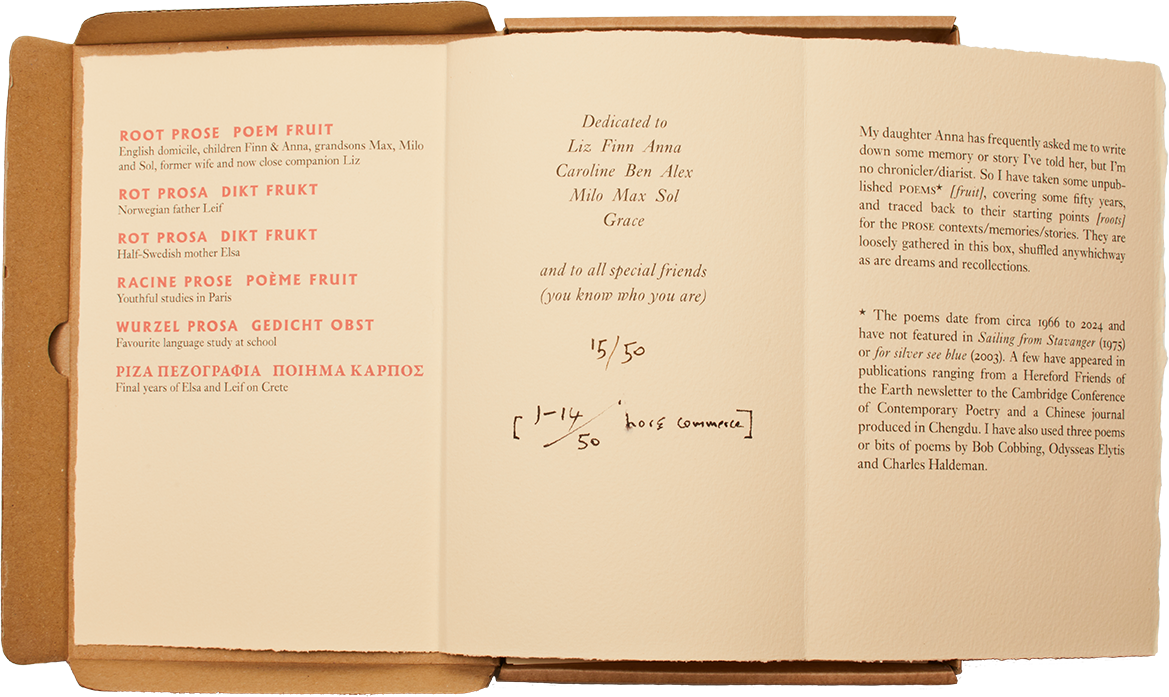 ROOT PROSE POEM FRUIT
English domicile, children Finn & Anna, grandsons Max, Milo
and Sol, former wife and now close companion Liz
ROT PROSA DIKT FRUKT
Norwegian father Leif
ROT PROSA DIKT FRUKT
Half-Swedish mother Elsa
RACINE PROSE POÈME FRUIT
Youthful studies in Paris
WURZEL PROSA GEDICHT OBST
Favourite language study at school
ΡΙΖΑ ΠΕΖΟΓΡΑΦΙΑ ΠΟΙΗΜΑ ΚΑΡΠΟΣ
Final years of Elsa and Leif on Crete
Dedicated to
Liz Finn Anna
Caroline Ben Alex
Milo Max Sol
Grace
and to all special friends
(you know who you are)
15/50
[1-14/50 hors commerce]
My daughter Anna has frequently asked me to write
down some memory or story I've told her, but I'm
no chronicler/diarist. So I have taken some unpub-
lished POEMS* [fruit], covering some fifty years,
and traced back to their starting points [roots]
for the PROSE contexts/memories/stories. They are
loosely gathered in this box, shuffled anywhichway
as are dreams and recollections.
* The poems date from circa 1966 to 2024 and
have not featured in Sailing from Stavanger (1975)
or for silver see blue (2003). A few have appeared in
publications ranging from a Hereford Friends of
the Earth newsletter to the Cambridge Conference
of Contemporary Poetry and a Chinese journal
produced in Chengdu. I have also used three poems
or bits of poems by Bob Cobbing, Odysseas Elytis
and Charles Haldeman.